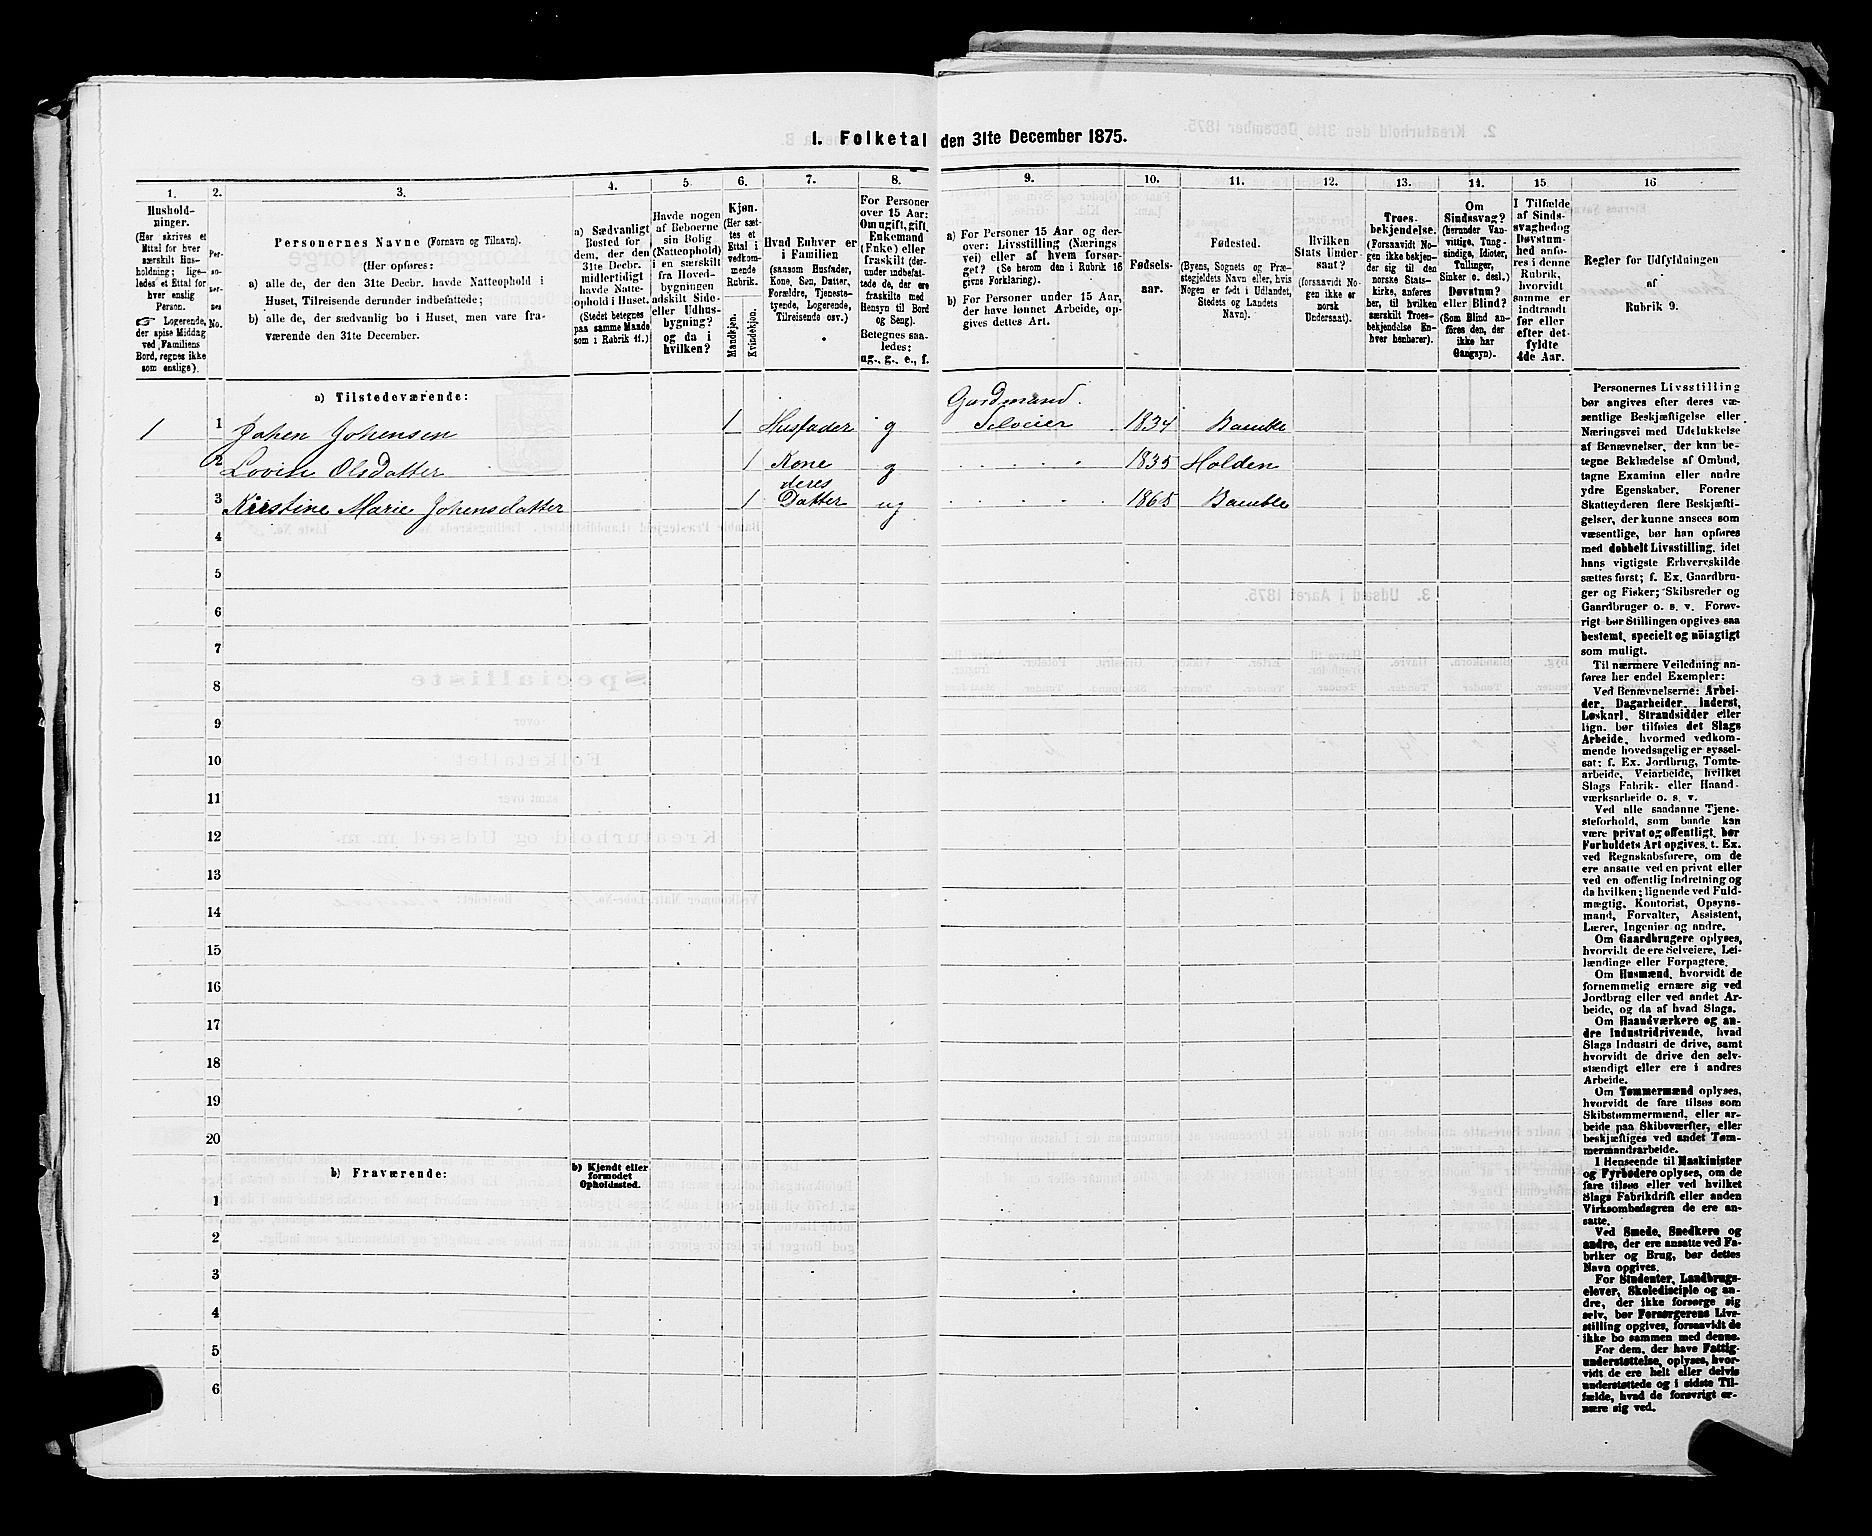 1. Folketal den 31te December 1875.
1. 2. 3. 4. 5. 6. 7. 8. 9. 10. 11. 12. 13. 14. 15 16
Hushold-
ninger.
(Her skrives et
Ettal for hver
særskilt Hus-
holdning; lige-
ledes et Ettal for
hver enslig
Person.
☞ Logerende,
der spise Middag
ved Familiens
Bord, regnes ikke
som enslige).
Per-
so-
ner-
nes
No.
Personernes Navne (Fornavn og Tilnavn).
(Her opføres:
a) alle de, der den 31te Decbr. havde Natteophold i
Huset, Tilreisende derunder indbefattede;
b) alle de, der sædvanlig bo i Huset, men vare fra-
værende den 31te December.
a) Sædvanligt
Bosted for
dem, der den
31te Decbr.
midlertidigt
havde Natte-
ophold i Huset.
(Stedet betegnes
paa samme Maade
som i Rubrik 11.)
Havde nogen
af Beboerne
sin Bolig
(Natteophold)
i en særskilt
fra Hoved-
bygningen
adskilt Side-
eller Udhus-
bygning?
og da i
hvilken?
Kjøn.
(Her sæt-
tes et
Ettal i
vedkom-
mende
Rubrik.
Mandkjøn.
Kvindekjøn.
Hvad Enhver er
i Familien
(saasom Husfader,
Kone, Søn, Datter,
Forældre, Tjeneste-
tyende, Logerende,
Tilreisende osv.)
For Personer
over 15 Aar:
Om ugift, gift,
Enkemand
(Enke) eller
fraskilt (der-
under indbefat-
tede de, der ere
fraskilte med
Hensyn til Bord
og Seng).
Betegnes saa-
ledes:
ug., g., e., f.
a) For Personer 15 Aar og der-
over: Livsstilling (Nærings
vei) eller af hvem forsør-
get? (Se herom den i Rubrik 16
givne Forklaring).
b) For Personer under 15 Aar,
der have lønnet Arbeide, op-
gives dettes Art.
Fødsels-
aar.
Fødested.
(Byens, Sognets og Præ-
stegjeldets Navn eller, hvis
Nogen er født i Udlandet,
Stedets og Landets
Navn).
Hvilken
Stats Under-
saat?
(forsaavidt No-
gen ikke er
norsk
Undersaat).
Troes-
bekjendelse.
(Forsaavidt No-
gen ikke bekjen-
der sig til den
norske Stats-
kirke, anføres
her, til hvilken
særskilt Troes-
bekjendelse En-
hver henhører).
Om
Sindssvag?
(herunder Van-
vittige, Tung-
sindige, Idioter,
Tullinger,
Sinker o. desl.)
Døvstum?
eller Blind?
(Som Blind an-
føres den, der
ikke har
Gangsyn).
I Tilfælde
af Sinds-
svaghed og
Døvstum-
hed anfø-
res i denne
Rubrik,
hvorvidt
samme er
indtraadt
før eller
efter det
fyldte
4de Aar.
Regler for Udfyldningen
af
Rubrik 9.
a) Tilstedeværende:
1 1 Johen Johensen 1 Husfader g Gardmand. Selveier 1834 Bamble
2 Lovise Olsdatter 1 Kone g 1835 Holden
3 Kirstine Marie Johensdatter 1 deres Datter ug 1865 Bamble
4
5
6
7
8
9
10
11
12
13
14
15
16
17
18
19
20
b) Fraværende:
b) Kjendt eller
formodet
Opholdssted.
1
2
3
4
5
6
Personernes Livsstilling
bør angives efter deres væ-
sentlige Beskjæftigelse eller
Næringsvei med Udelukkelse
af Benævnelser, der kun be-
tegne Beklædelse af Ombud,
tagne Examina eller andre
ydre Egenskaber. Forener
Skatteyderen flere Beskjæfti-
gelser, der kunne ansees som
væsentlige, bør han opføres
med dobbelt Livsstilling, idet
hans vigtigste Erhvervskilde
sættes først; f. Ex. Gaardbru-
ger og Fisker; Skibsreder og
Gaardbruger o. s. v. Forøv-
rigt bør Stillingen opgives saa
bestemt, specielt og nöiagtigt
som muligt.
Til nærmere Veiledning an-
føres her endel Exempler:
Ved Benævnelserne: Arbei-
der, Dagarbeider, Inderst,
Løskarl, Strandsidder eller
lign. bør tilføies det Slags
Arbeide, hvormed vedkom-
mende hovedsagelig er syssel-
sat; f. Ex. Jordbrug, Tomte-
arbeide, Veiarbeide, hvilket
Slags Fabrik- eller Haand-
værksarbeide o. s. v.
Ved alle saadanne Tjene-
steforhold, som baade kan
være privat og offentligt, bør
Forholdets Art opgives, t. Ex.
ved Regnskabsførere, om de
ere ansatte ved en privat eller
ved en offentlig Indretning og
da hvilken; lignende ved Fuld-
mægtig, Kontorist, Opsyns-
mand, Forvalter, Assistent,
Lærer, Ingeniør og andre.
Om Gaardbrugere oplyses,
hvorvidt de ere Selveiere, Lei-
lændinge eller Forpagtere.
Om Husmænd, hvorvidt de
fornemmelig ernære sig ved
Jordbrug eller ved andet Ar-
beide, og da af hvad Slags.
Om Haandværkere og an-
dre Industridrivende, hvad
Slags Industri de drive, samt
hvorvidt de drive den selv-
stændigt eller ere i andres
Arbeide.
Om Tømmermænd oplyses,
hvorvidt de fare tilsøs som
Skibstømmermænd, eller ar-
beide paa Skibsværfter, eller
beskjæftiges ved andet Tøm-
mermandsarbeide.
I Henseende til Maskinister
og Fyrbødere oplyses, om de
fare tilsøs eller ved hvilket
Slags Fabrikdrift eller anden
Virksombedsgren de ere an-
satte.
Ved Smede, Snedkere og
andre, der ere ansatte ved Fa-
briker og Brug, bør dettes
Navn opgives.
For Studenter, Landbrugs-
elever, Skoledisciple og an-
dre, der ikke forsørge sig
selv, bør Forsørgerens Livs-
stilling opgives, forsaavidt de
ikke bo sammen med denne.
For dem, der have Fattig-
understøttelse, oplyses, hvor-
vidt de ere helt eller delvis
understøttede og i sidste Til-
fælde, hvad de forøvrigt er-
nære sig ved.